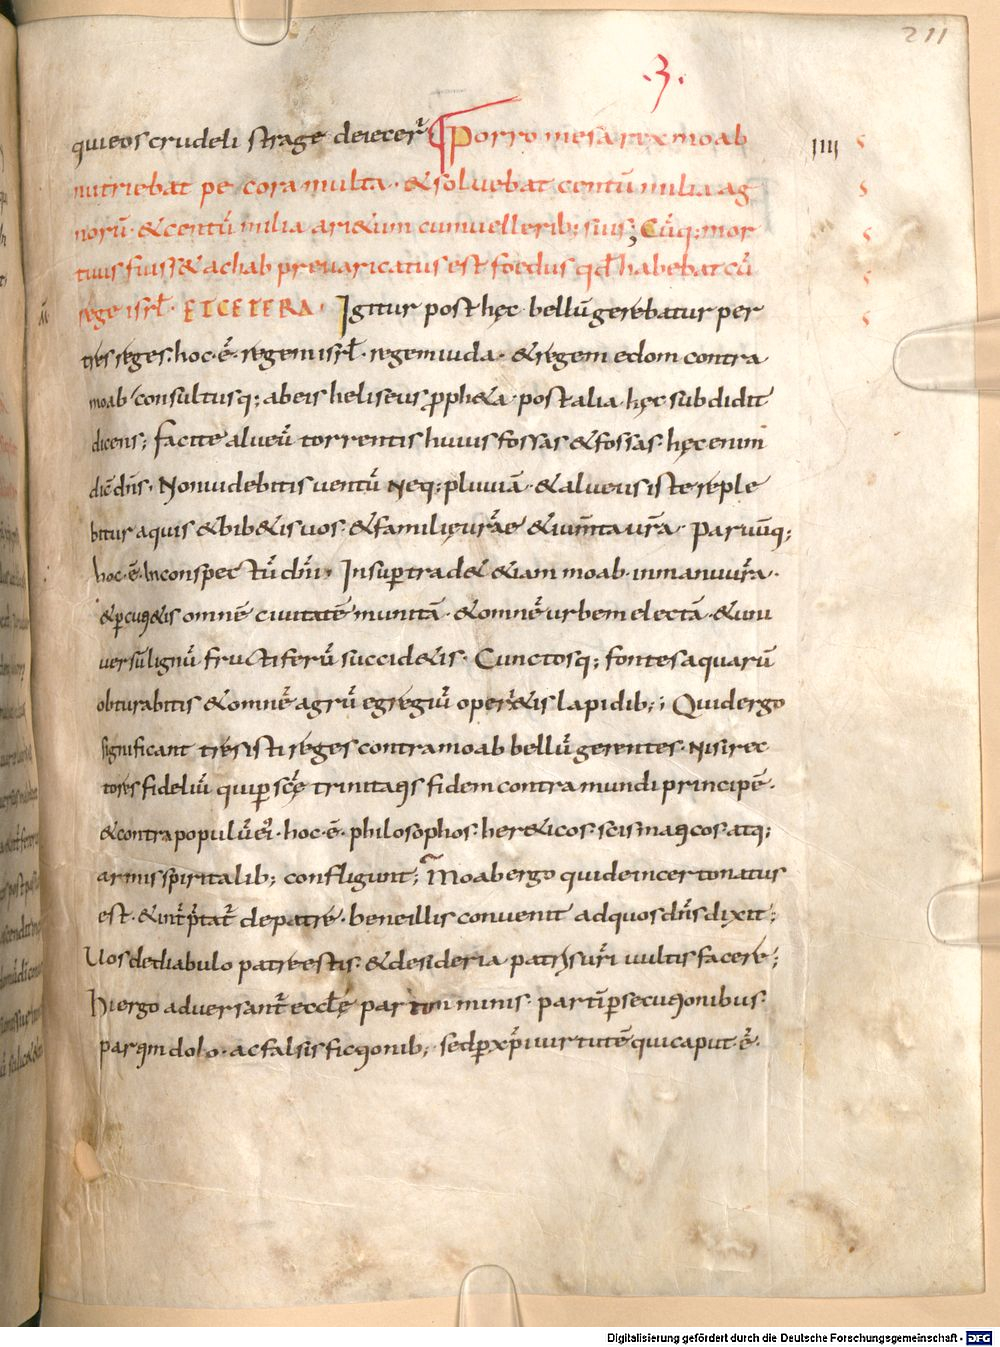 211
.3.
qui eos crudeli strage deiecer̄ Porro mesa rex moab IIII
nutriebat pecora multa · & soluebat centū milia ag
norū · & centū milia ari&um cum uellerib; suis; Cūq; mor
tuus fuiss& achab preuaricatus est foedus qđ habebat cū
rege isrł · ETCETERA · Igitur post hęc bellū gerebatur per
tres reges. hoc · ē · regem isrł · regem iuda · & regem edom contra
moab consultusq; ab eis heliseus ꝓph&a post alia hęc subdidit
dicens; facite alueū torrentis huius fossas & fossas. hęc enim
dic̄ dn̄s · Non uidebitis uentū Neq; pluuiā · & alueus iste reple
bitur aquis & bib&is uos · & familię ur̄ae & ium̄ta ur̄a · Parūq;
hoc · ē · in conspectū dn̄i · Insuꝑ trad& &iam moab · in man ur̄a ·
& ꝑcuti&is omnē ciuitatē munitā · & omnē urbem electā · & uni
uersū lignū fructiferū succid&is · Cunctosq; fontes aquarū
obturabitis & omnē agrū egregiū oper&is lapidib; ; Quid ergo
significant tres isti reges contra moab bellū gerentes · Nisi rec
tores fideliū qui ꝑ scę̄ trinitatis fidem contra mundi principē ·
& contra populū ei' · hoc · ē · philosophos. her&icos. scismaticos atq;
armis spiritalib; confligunt; Moab ergo qui de incerto natus
est · & int̄p̄tat̄ de patre · bene illis conuenit ad quos dn̄s dixit;
Uos de diabulo patre estis · & desideria patris ur̄i uultis facere;
Hi ergo aduersant̄ eccłę partim minis · partī ꝑsecutionibus
partim dolo · ac falsis fictionib; · sed ꝑ xp̄i uirtutē qui caput · ē ·
Digitalisierung gefördert durch die Deutsche Forschungsgemeinschaft - DFG